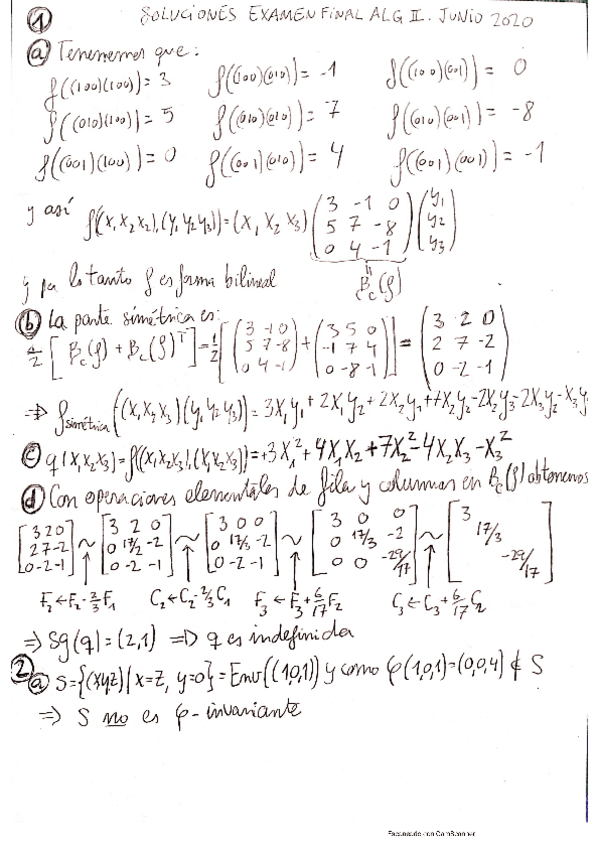 ① SOLUCIONES EXAMEN FINAL ALG II. JUNIO 2020
ⓐ Tenememos que:
f((100)(100)) = 3 f((100)(010)) = -1 f((100)(001)) = 0
f((010)(100)) = 5 f((010)(010)) = 7 f((010)(001)) = -8
f((001)(100)) = 0 f((001)(010)) = 4 f((001)(001)) = -1
y así f((x₁x₂x₃),(y₁y₂y₃)) = (x₁ x₂ x₃) (3 -1 0 / 5 7 -8 / 0 4 -1) (y₁ / y₂ / y₃)
y por lo tanto f es forma bilineal
= B_c(f)
ⓑ La parte simétrica es:
1/2 [B_c(f) + B_c(f)ᵀ] = 1/2 [(3 -1 0 / 5 7 -8 / 0 4 -1) + (3 5 0 / -1 7 4 / 0 -8 -1)] = (3 2 0 / 2 7 -2 / 0 -2 -1)
⇒ f simétrica ((x₁x₂x₃)(y₁y₂y₃)) = 3x₁y₁ + 2x₁y₂ + 2x₂y₁ + 7x₂y₂ - 2x₂y₃ - 2x₃y₂ - x₃y
ⓒ q(x₁x₂x₃) = f((x₁x₂x₃),(x₁x₂x₃)) = +3x₁² + 4x₁x₂ + 7x₂² - 4x₂x₃ - x₃²
ⓓ Con operaciones elementales de fila y columnas en B_c(f) obtenemos
[3 2 0 / 2 7 -2 / 0 -2 -1] ~ [3 2 0 / 0 17/2 -2 / 0 -2 -1] ~ [3 0 0 / 0 17/3 -2 / 0 -2 -1] ~ [3 0 0 / 0 17/3 -2 / 0 0 -29/17] ~ [3 / 17/3 / -29/17]
F₂←F₂-2/3F₁ C₂←C₂-2/3C₁ F₃←F₃+6/17F₂ C₃←C₃+6/17C₂
⇒ Sg(q) = (2,1) ⇒ q es indefinida
②
ⓐ S={(xyz)| x=z, y=0} = Env((1,0,1)) y como φ(1,0,1)=(0,0,4) ∉ S
⇒ S no es φ-invariante
Escaneado con CamScanner